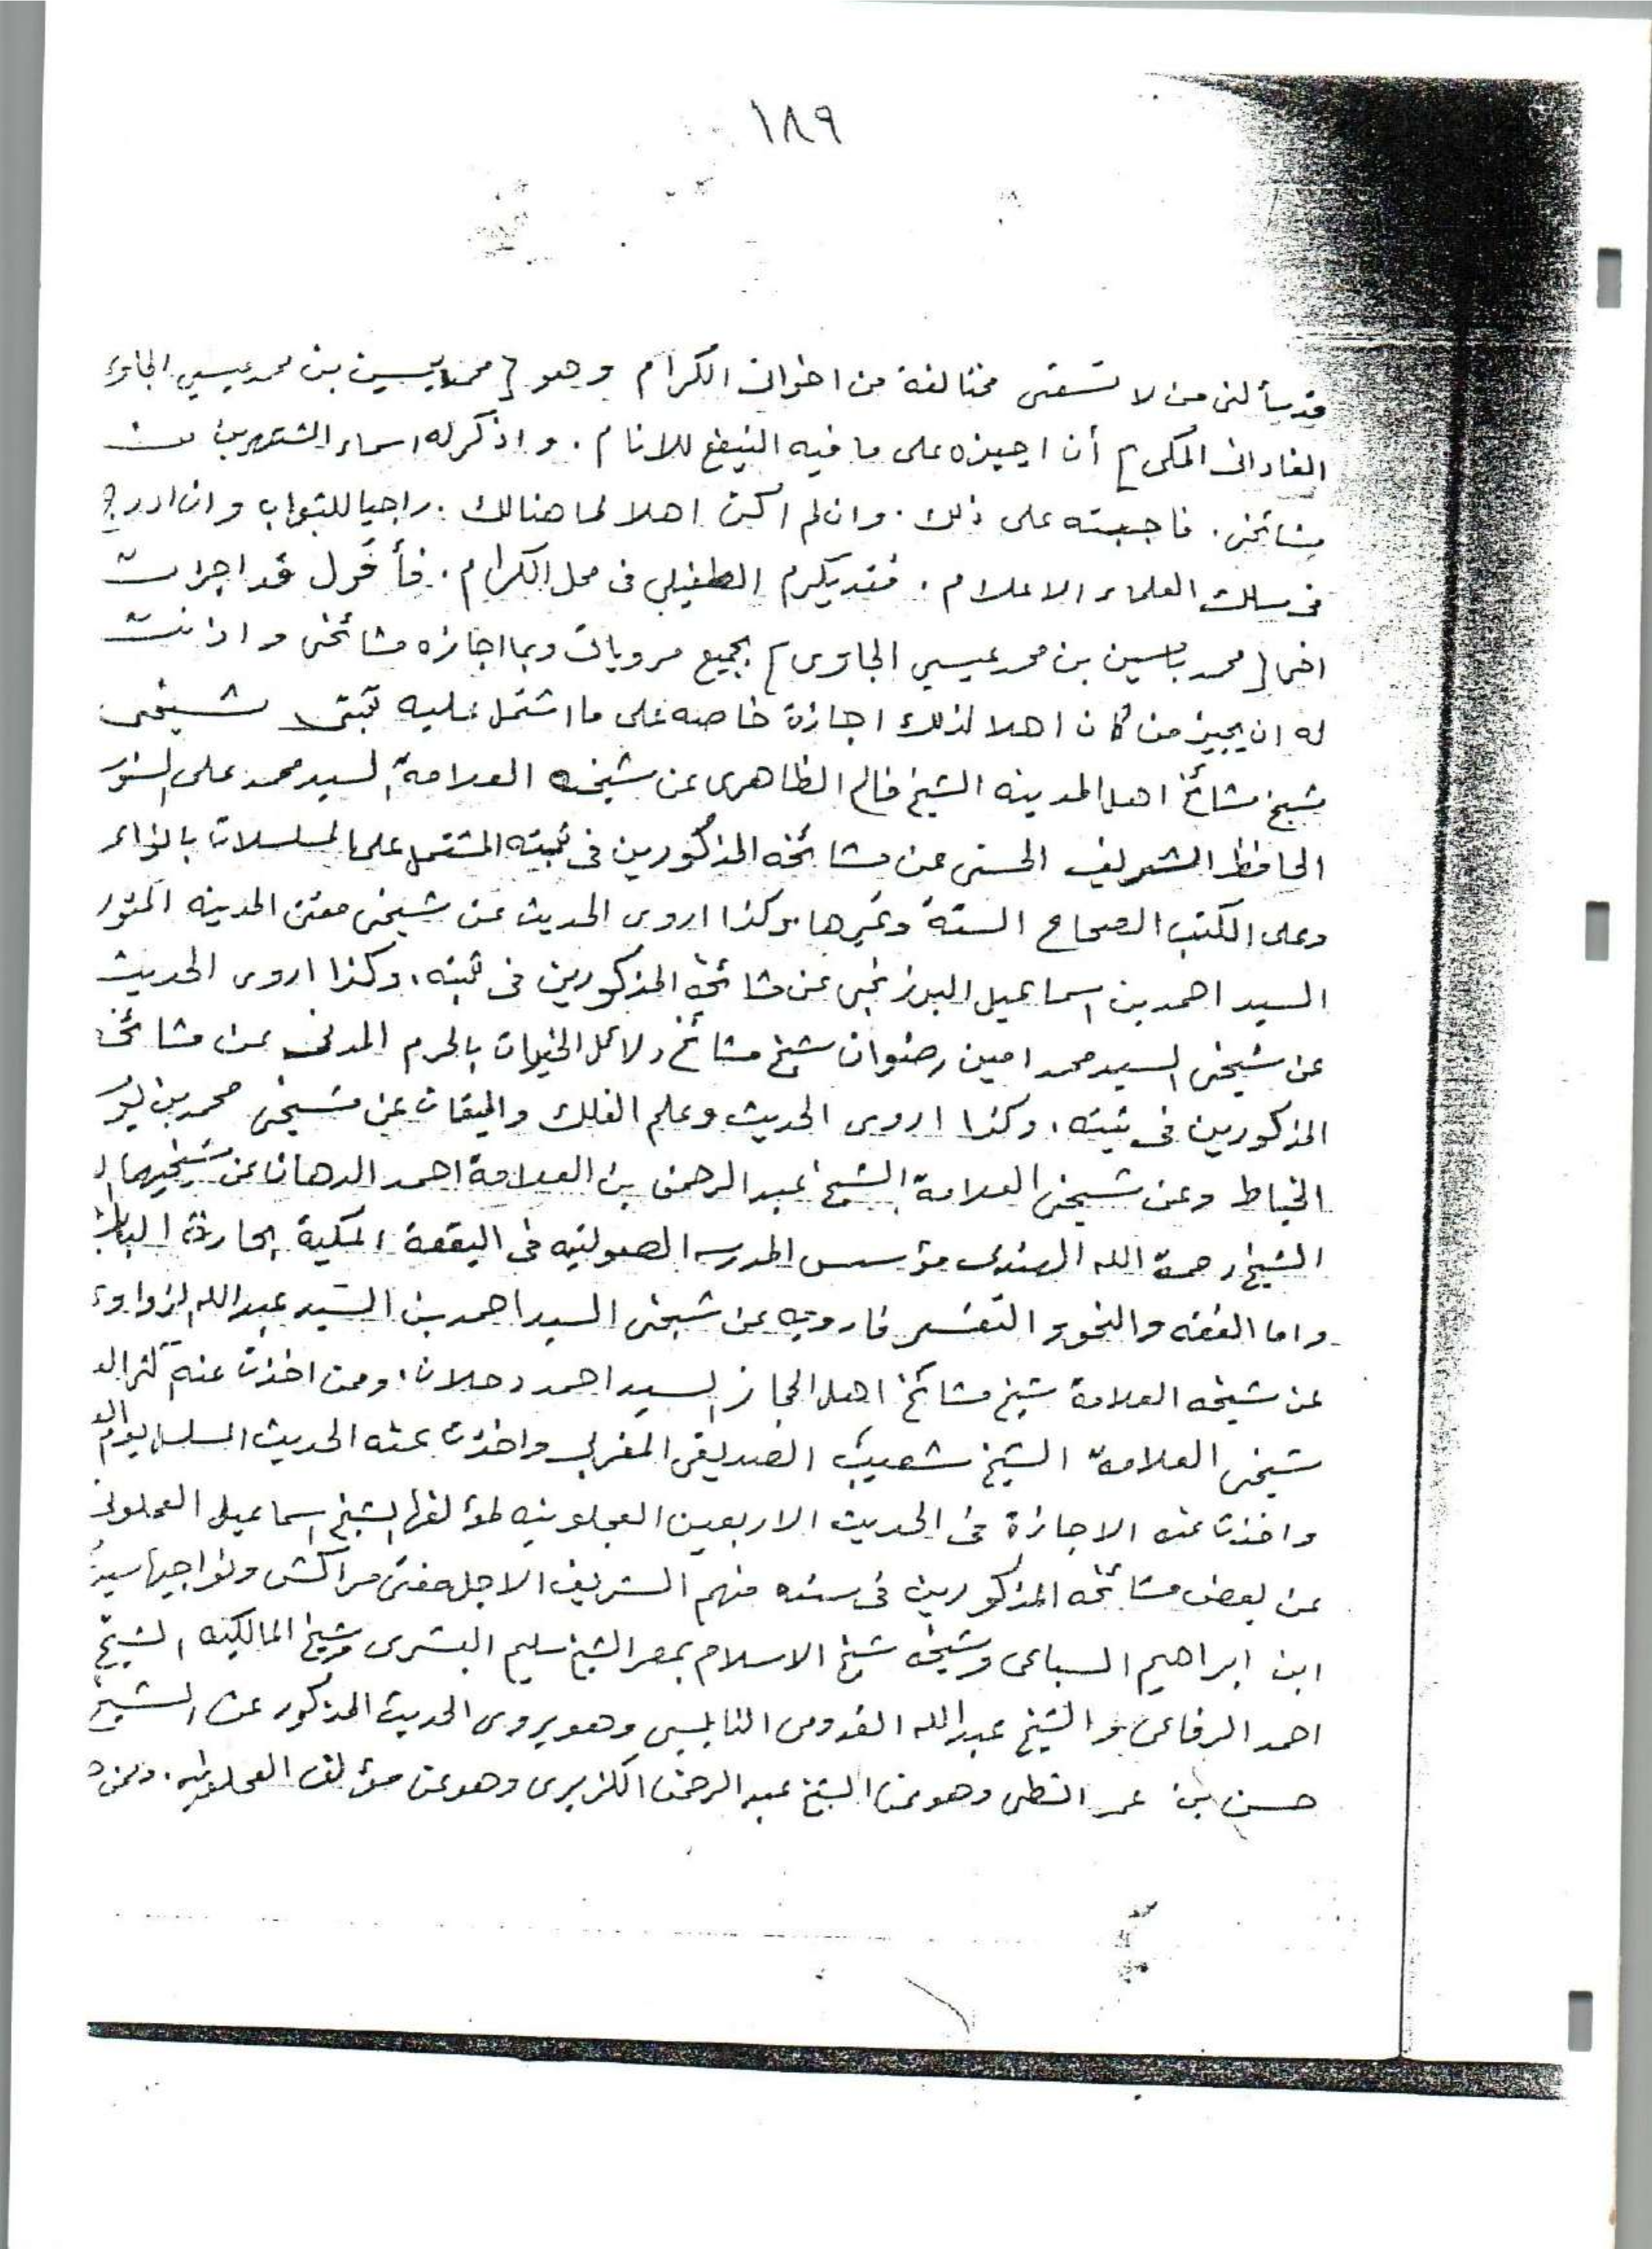 ١٨٩
قد سألنى من لا تسعنى مخالفة من اخوانى الكرام وهو [محمد يسين بن محمد عيسى الجاوى
الفادانى المكى] أن اجيزه على ما فيه النفع للانام . واذكر له اسماء المشتهرين من
مشائخى . فاجبته على ذلك . وان لم اكن اهلا لما هنالك . راجيا للثواب وان ادرج
فى سلك العلماء الاعلام . فقد يكرم الطفيلى فى محل الكرام . فأقول قد اجزت
اخى [محمد ياسين بن محمد عيسى الجاوى] بجميع مروياتى وبما اجازه مشائخى واذنت
له ان يجيز من كان اهلا لذلك اجازة خاصه على ما اشتمل عليه ثبتى شيخى
شيخ مشائخ اهل المدينه الشيخ فالح الظاهرى عن شيخه العلامة السيد محمد على السنو
الحافظ الشريف الحسنى عن مشائخه المذكورين فى ثبته المشتمل على المسلسلات بالواء
وعلى الكتب الصحاح الستة وغيرها . وكذا اروى الحديث عن شيخى مفتى المدينه المنور
السيد احمد بن اسماعيل البرزنجى عن مشائخه المذكورين فى ثبته . وكذا اروى الحديث
عن شيخى السيد محمد امين رضوان شيخ مشائخ دلائل الخيرات بالحرم المدنى عن مشائخه
المذكورين فى ثبته . وكذا اروى الحديث وعلم الفلك والميقات عن شيخى محمد بن يو
الخياط وعن شيخى العلامة الشيخ عبد الرحمن بن العلامة احمد الدهان عن شيخيهما ا
الشيخ رحمة الله الهندى مؤسس المدرسه الصولتيه فى البقعة المكية بحارة الباب
واما الفقه والنحو والتفسير فارويه عن شيخى السيد احمد بن السيد عبد الله الزواوى
عن شيخه العلامة شيخ مشائخ اهل الحجاز السيد احمد دحلان . وممن اخذت عنه
شيخى العلامة الشيخ شعيب الصديقى المغربى واخذت عنه الحديث المسلسل
واخذت عنه الاجازة فى الحديث الاربعين العجلونيه لمؤلفها الشيخ اسماعيل العجلونى
عن بعض مشائخه المذكورين فى سنده منهم الشريف الاجل مفتى مراكش ونواحيها سيد
ابن ابراهيم السباعى وشيخه شيخ الاسلام بمصر الشيخ سليم البشرى وشيخ المالكيه الشيخ
احمد الرفاعى والشيخ عبد الله القدومى النابلسى وهو يروى الحديث المذكور عن الشيخ
حسن بن عمر الشطى وهو عن الشيخ عبد الرحمن الكزبرى وهو عن مؤلف العجلونيه .